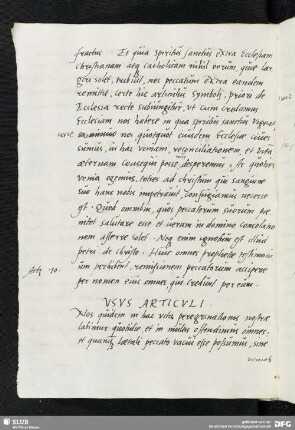 fructus. Et quia spiritus sanctus extra Ecclesiam
christianam atq catholicam nihil eorum, quae
solet, tribuit, nec peccatum extra eandem
remittit, certe hic articulus symboli, priori de
Ecclesia recte subiungitur, ut cum credamus
Ecclesiam nos habere in qua spiritus sanctus
nos quotquot eiusdem Ecclesiae cives
sumus, in hac veniam, reconciliationem et vitam
aeternam consequi posse desperemus. At quoties
venia egemus, toties ad christum qui sanguine
suo hanc nobis impetravit, confugiamus necesse
est. Quod omnibus, quos peccatorum suorum poe
nitet salutare esse et veram in domino consolatio
nem afferre solet. Neq enim ignotum est illud
petri de christo. Huic omnes prophetae testimoni
Acto. 10.
um perhibent, remissionem peccatorum accipere
per nomen eius omnes qui credunt per eum.
USUS ARTICULI.
Nos quidem in hac vita peregrinationis nostrae
labimur quotidie, et in multis offendimus omnes:
et quanq laetali peccato vacui esse possumus, sine
SLUB
DFG